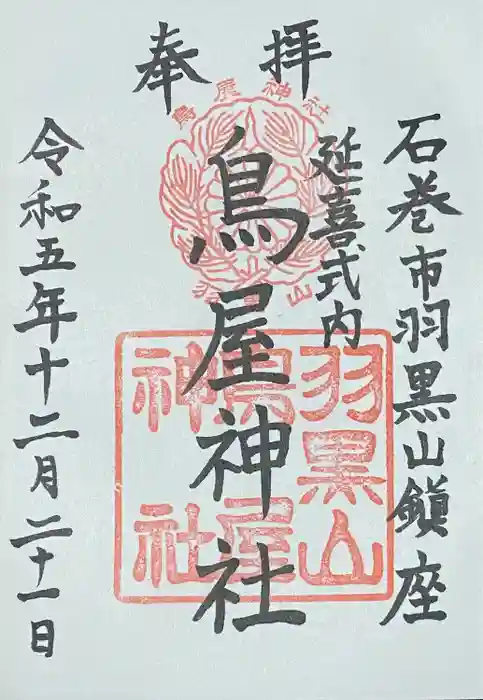 奉拝
石巻市羽黒山鎮座
延喜式内
鳥屋神社
令和五年十二月二十一日
鳥屋神社
羽
山
羽黒山
鳥屋
神社